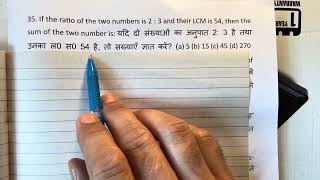 35. If the ratio of the two numbers is 2 : 3 and their LCM is 54, then the
sum of the two number is: यदि दो संख्याओं का अनुपात 2: 3 है तथा
उनका ल0 स0 54 है, तो सख्याएँ ज्ञात करें? (a) 5 (b) 15 (c) 45 (d) 270
1 YEAR
WARRANTY